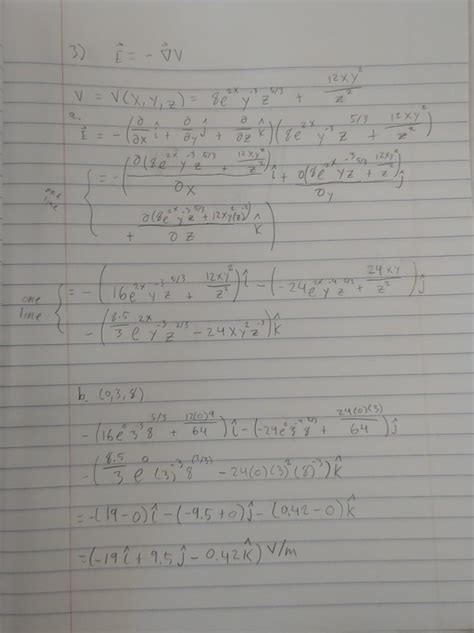 3) E⃗ = -∇⃗V
V = V(x,y,z) = 8e^{2x} y^{-3} z^{5/3} + 12xy²/z²
a.
E⃗ = -(∂/∂x î + ∂/∂y ĵ + ∂/∂z k̂)(8e^{2x} y^{-3} z^{5/3} + 12xy²/z²)
one line { = -(∂(8e^{2x} y^{-3} z^{5/3} + 12xy²/z²)/∂x î + ∂(8e^{2x} y^{-3} z^{5/3} + 12xy²/z²)/∂y ĵ
+ ∂(8e^{2x} y^{-3} z^{5/3} + 12xy²(z)^{-2})/∂z k̂)
one line { = -(16e^{2x} y^{-3} z^{5/3} + 12xy²/z²)î - (-24e^{2x} y^{-4} z^{5/3} + 24xy/z²)ĵ
- (8.5/3 e^{2x} y^{-3} z^{2/3} - 24xy² z^{-3})k̂
b. (0,3,8)
-(16e⁰ 3^{-3} 8^{5/3} + 12(0)9/64)î - (-24e⁰ 3^{-4} 8^{5/3} + 24(0)(3)/64)ĵ
-(8.5/3 e⁰ (3)^{-3} 8^{(2/3)} - 24(0)(3)²(8)^{-3})k̂
= -(19-0)î - (-9.5+0)ĵ - (0.42-0)k̂
= (-19î + 9.5ĵ - 0.42k̂) V/m